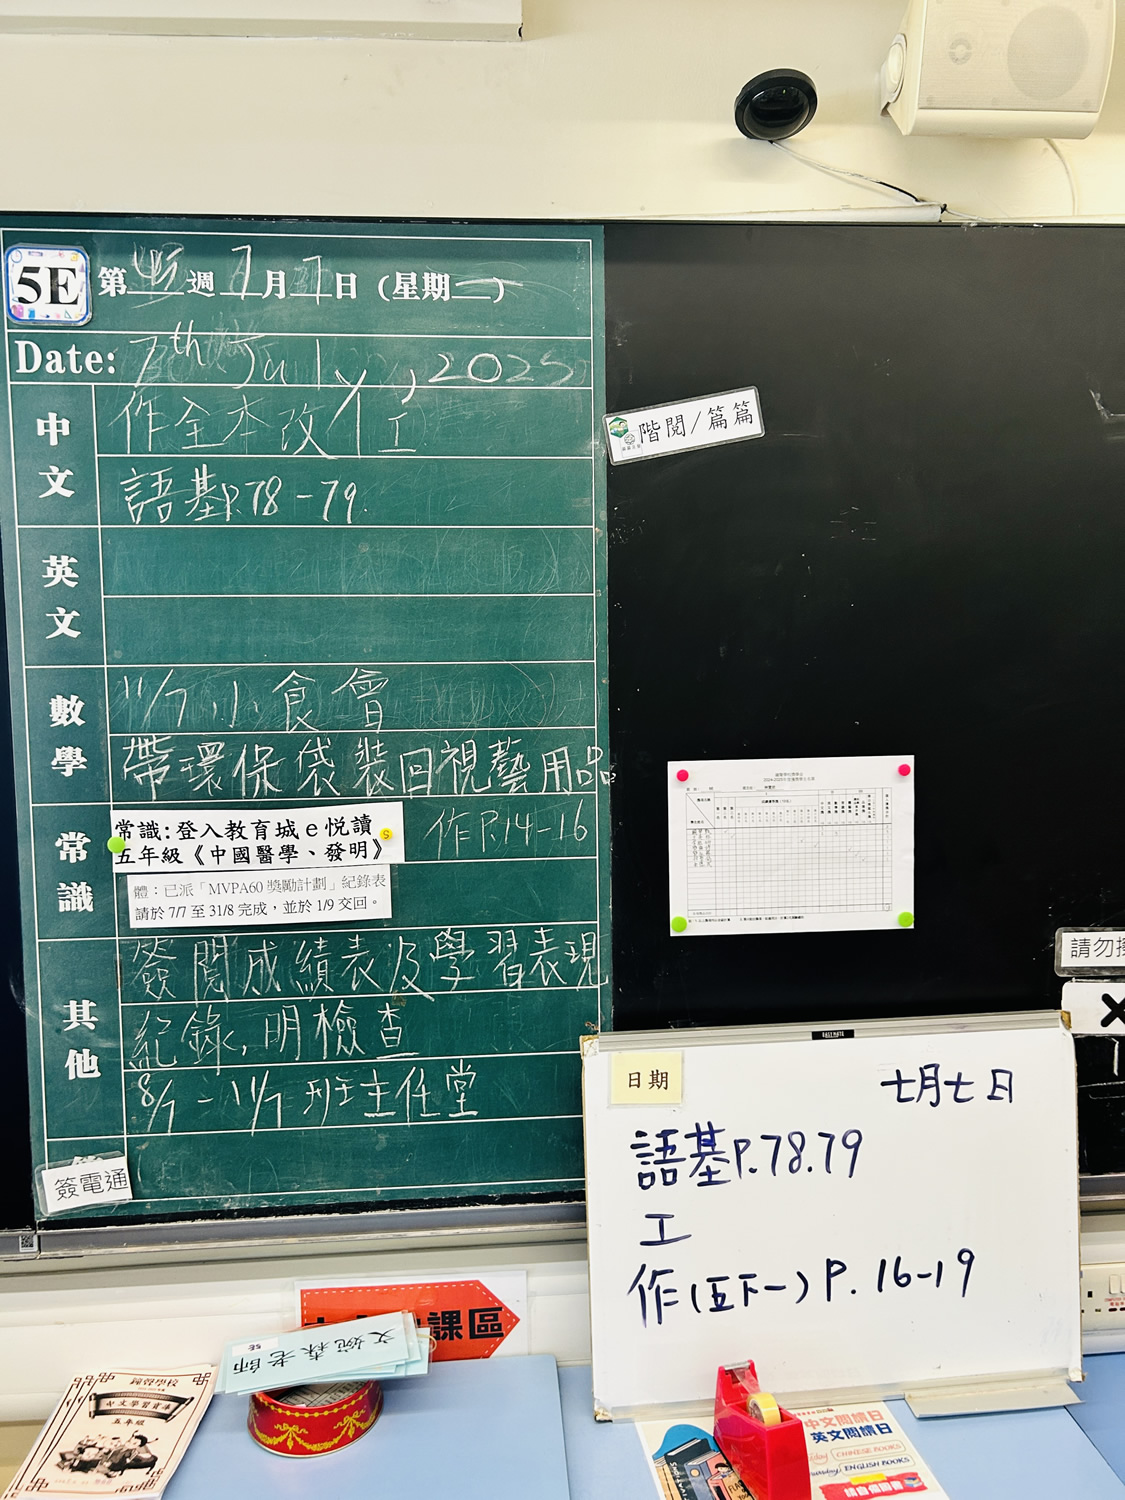 5E 第45週 7月7日 (星期一)
Date: 7th July, 2025
中文
作全本改/工
語基P.78-79.
英文
數學
11/7 小食會
帶環保袋裝回視藝用品
常識
常識:登入教育城e悅讀
五年級《中國醫學、發明》
S
作P.14-16
體：已派「MVPA60 獎勵計劃」紀錄表
請於 7/7 至 31/8 完成，並於 1/9 交回。
其他
簽閱成績表及學習表現
紀錄,明檢查
8/7-11/7 班主任堂
簽電通
階閱/篇篇
請勿
日期
七月七日
語基P.78.79
工
作(五下一) P. 16-19
課區
文婉森老師
5E
鐘聲學校
五年級
中文閱讀日
英文閱讀日
CHINESE BOOKS
ENGLISH BOOKS